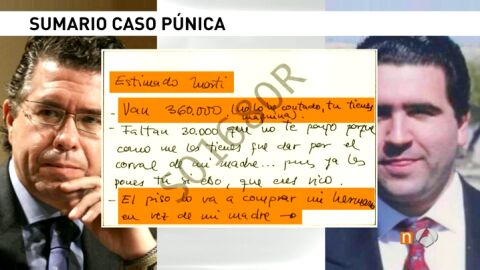 SUMARIO CASO PÚNICA
Estimado Marti
- Van 360.000 (no lo he contado, tu tienes
máquina).
- Faltan 30.000 que no te pongo porque
como me los tienes que dar por el
corral de mi madre... pues ya los
pones tu si eso, que eres rico.
- El piso lo va a comprar mi hermano
en vez de mi madre →
SO1080R
n